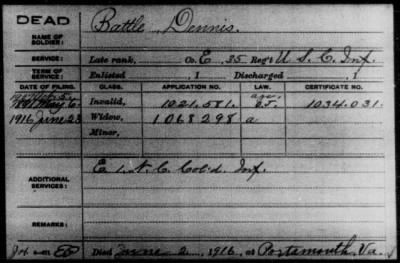 DEAD
Battle, Dennis.
NAME OF SOLDIER:
SERVICE: Late rank, Co. E, 35 Reg't U. S. C. Inf.
TERM OF SERVICE: Enlisted , 1 Discharged , 1
DATE OF FILING. CLASS. APPLICATION NO. LAW. CERTIFICATE NO.
May 6, Invalid, 1021.581. 1034.031.
1916 June 23 Widow, 1068298 a
Minor,
ADDITIONAL SERVICES: E 1. N. C. Col'd. Inf.
REMARKS:
Died June 2, 1916, at Portsmouth, Va.